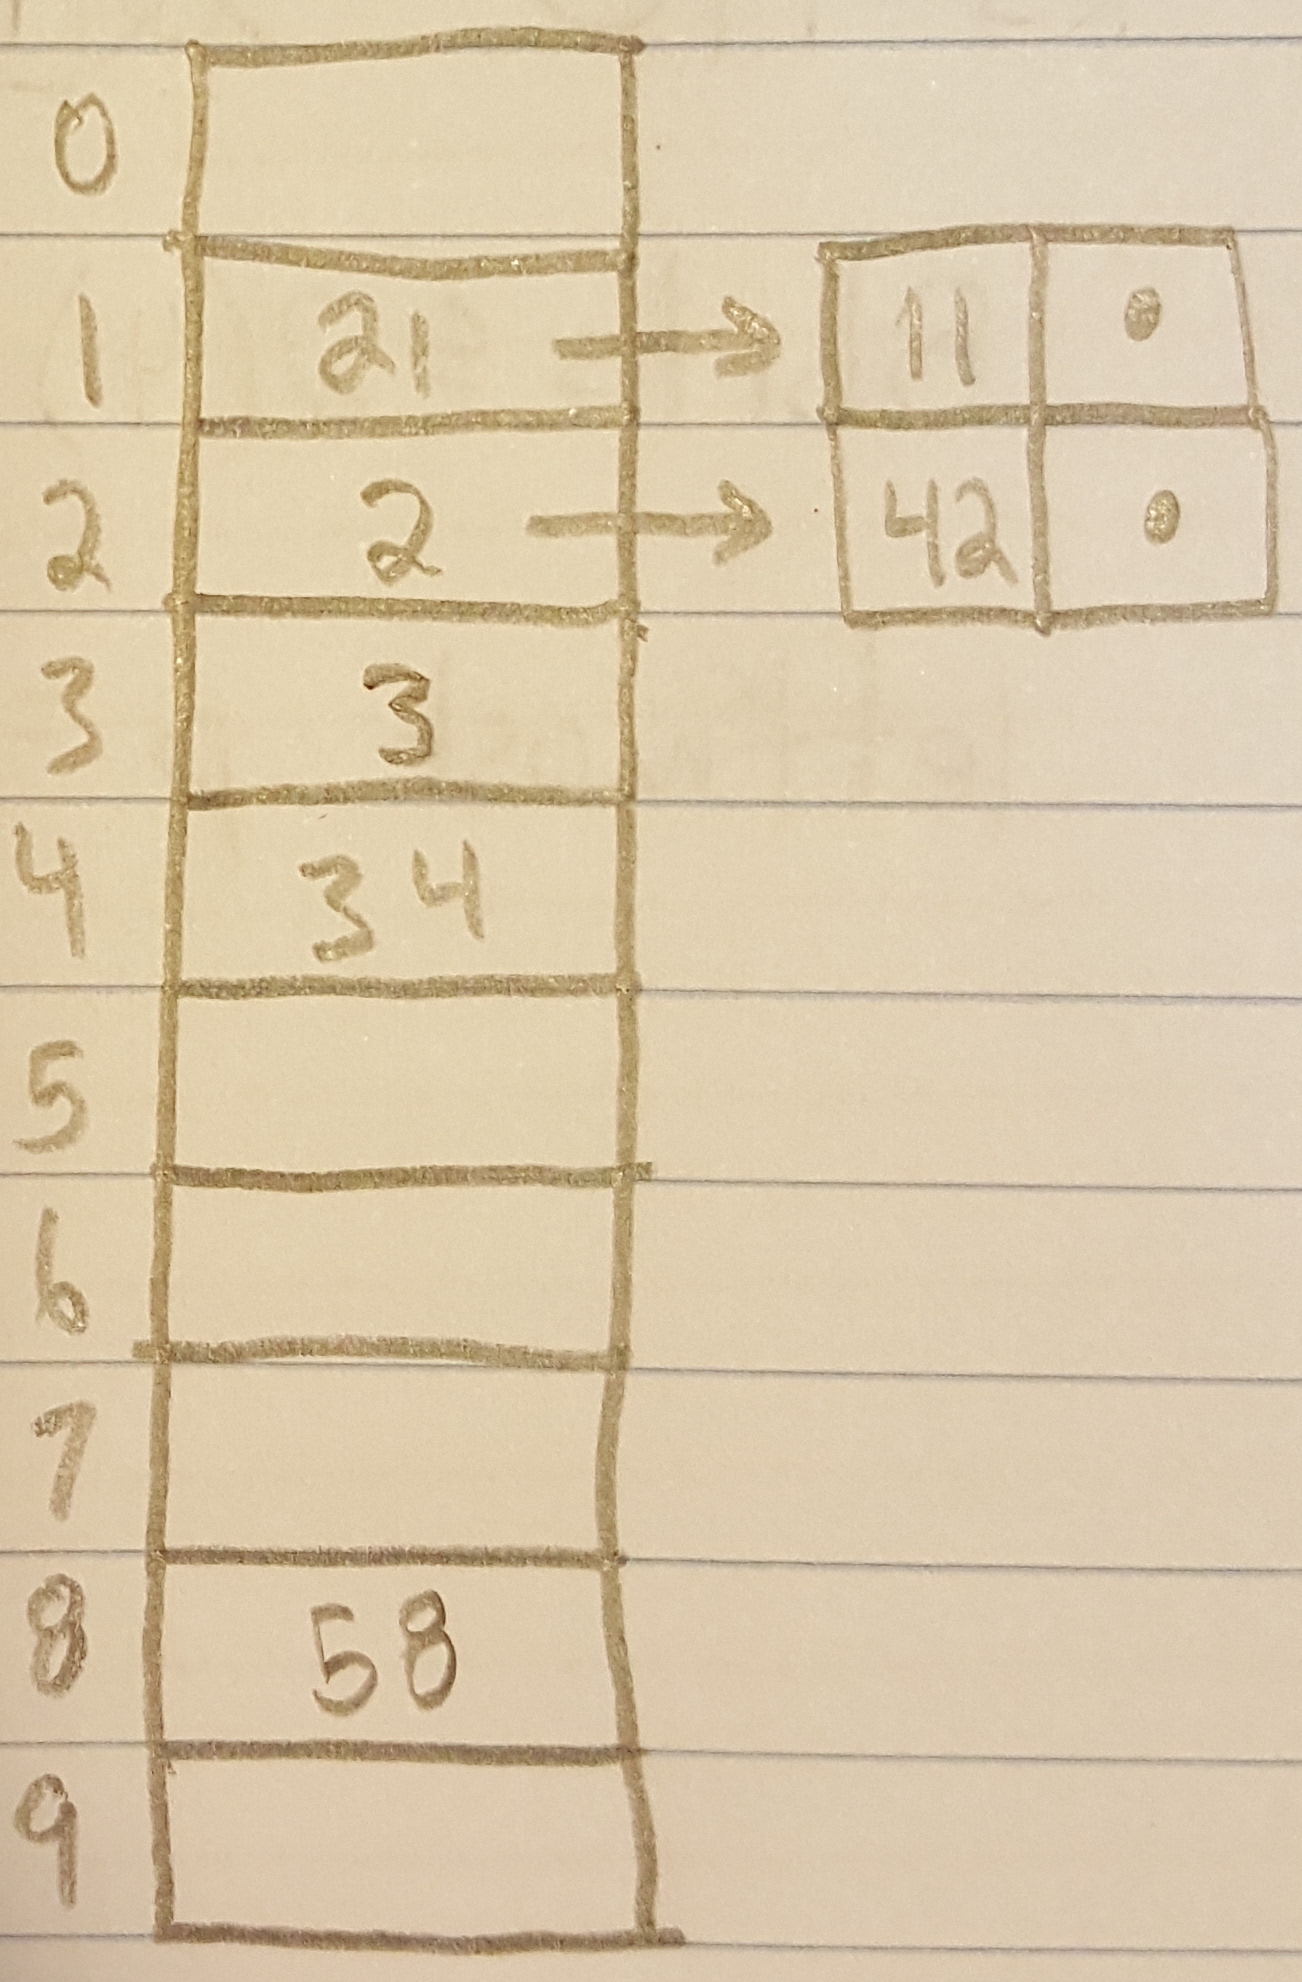 0
1 21 → 11 •
2 2 → 42 •
3 3
4 34
5
6
7
8 58
9